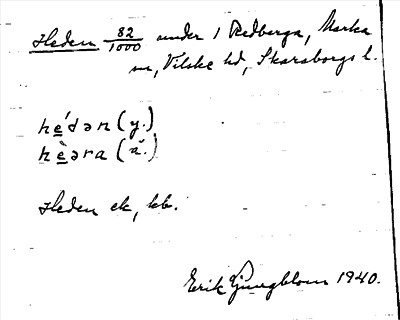 Heden 82/1000 under 1 Redberga, Marka
sn, Vilske hd, Skaraborgs l.
hé̱dən (y.)
hè̱əra (ä.)
Heden ek, kb.
Erik Ljungblom 1940.